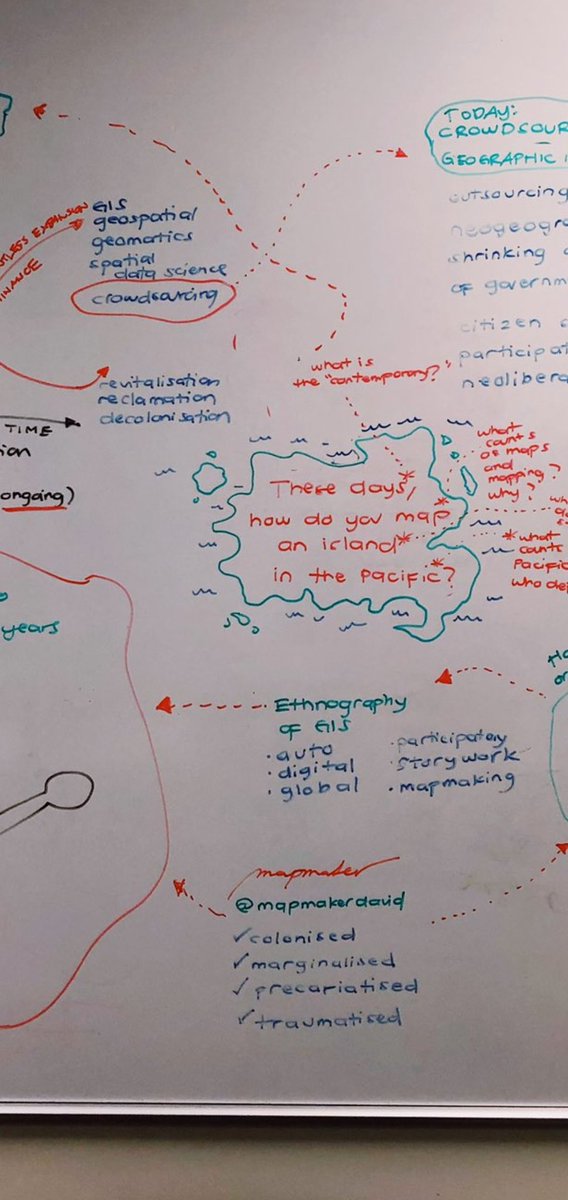 TODAY:
CROWDSOUR
GEOGRAPHIC I
outsourcing
neogeogra
shrinking
of governm
citizen
participat
neolibera
EXPANSION
FINANCE
GIS
geospatial
geomatics
spatial
data science
crowdsourcing
revitalisation
reclamation
decolonisation
TIME
ion
ongoing)
years
what is
the "contemporary?"
These days,*
how do you map*
an island*
in the Pacific?*
what
counts
as maps
and
mapping?
why?
*what
counts
Pacific
who def
Ethnography
of GIS
• auto
• digital
• global
• participatory
• storywork
• mapmaking
mapmaker
@mapmakerdavid
✓colonised
✓marginalised
✓precariatised
✓traumatised